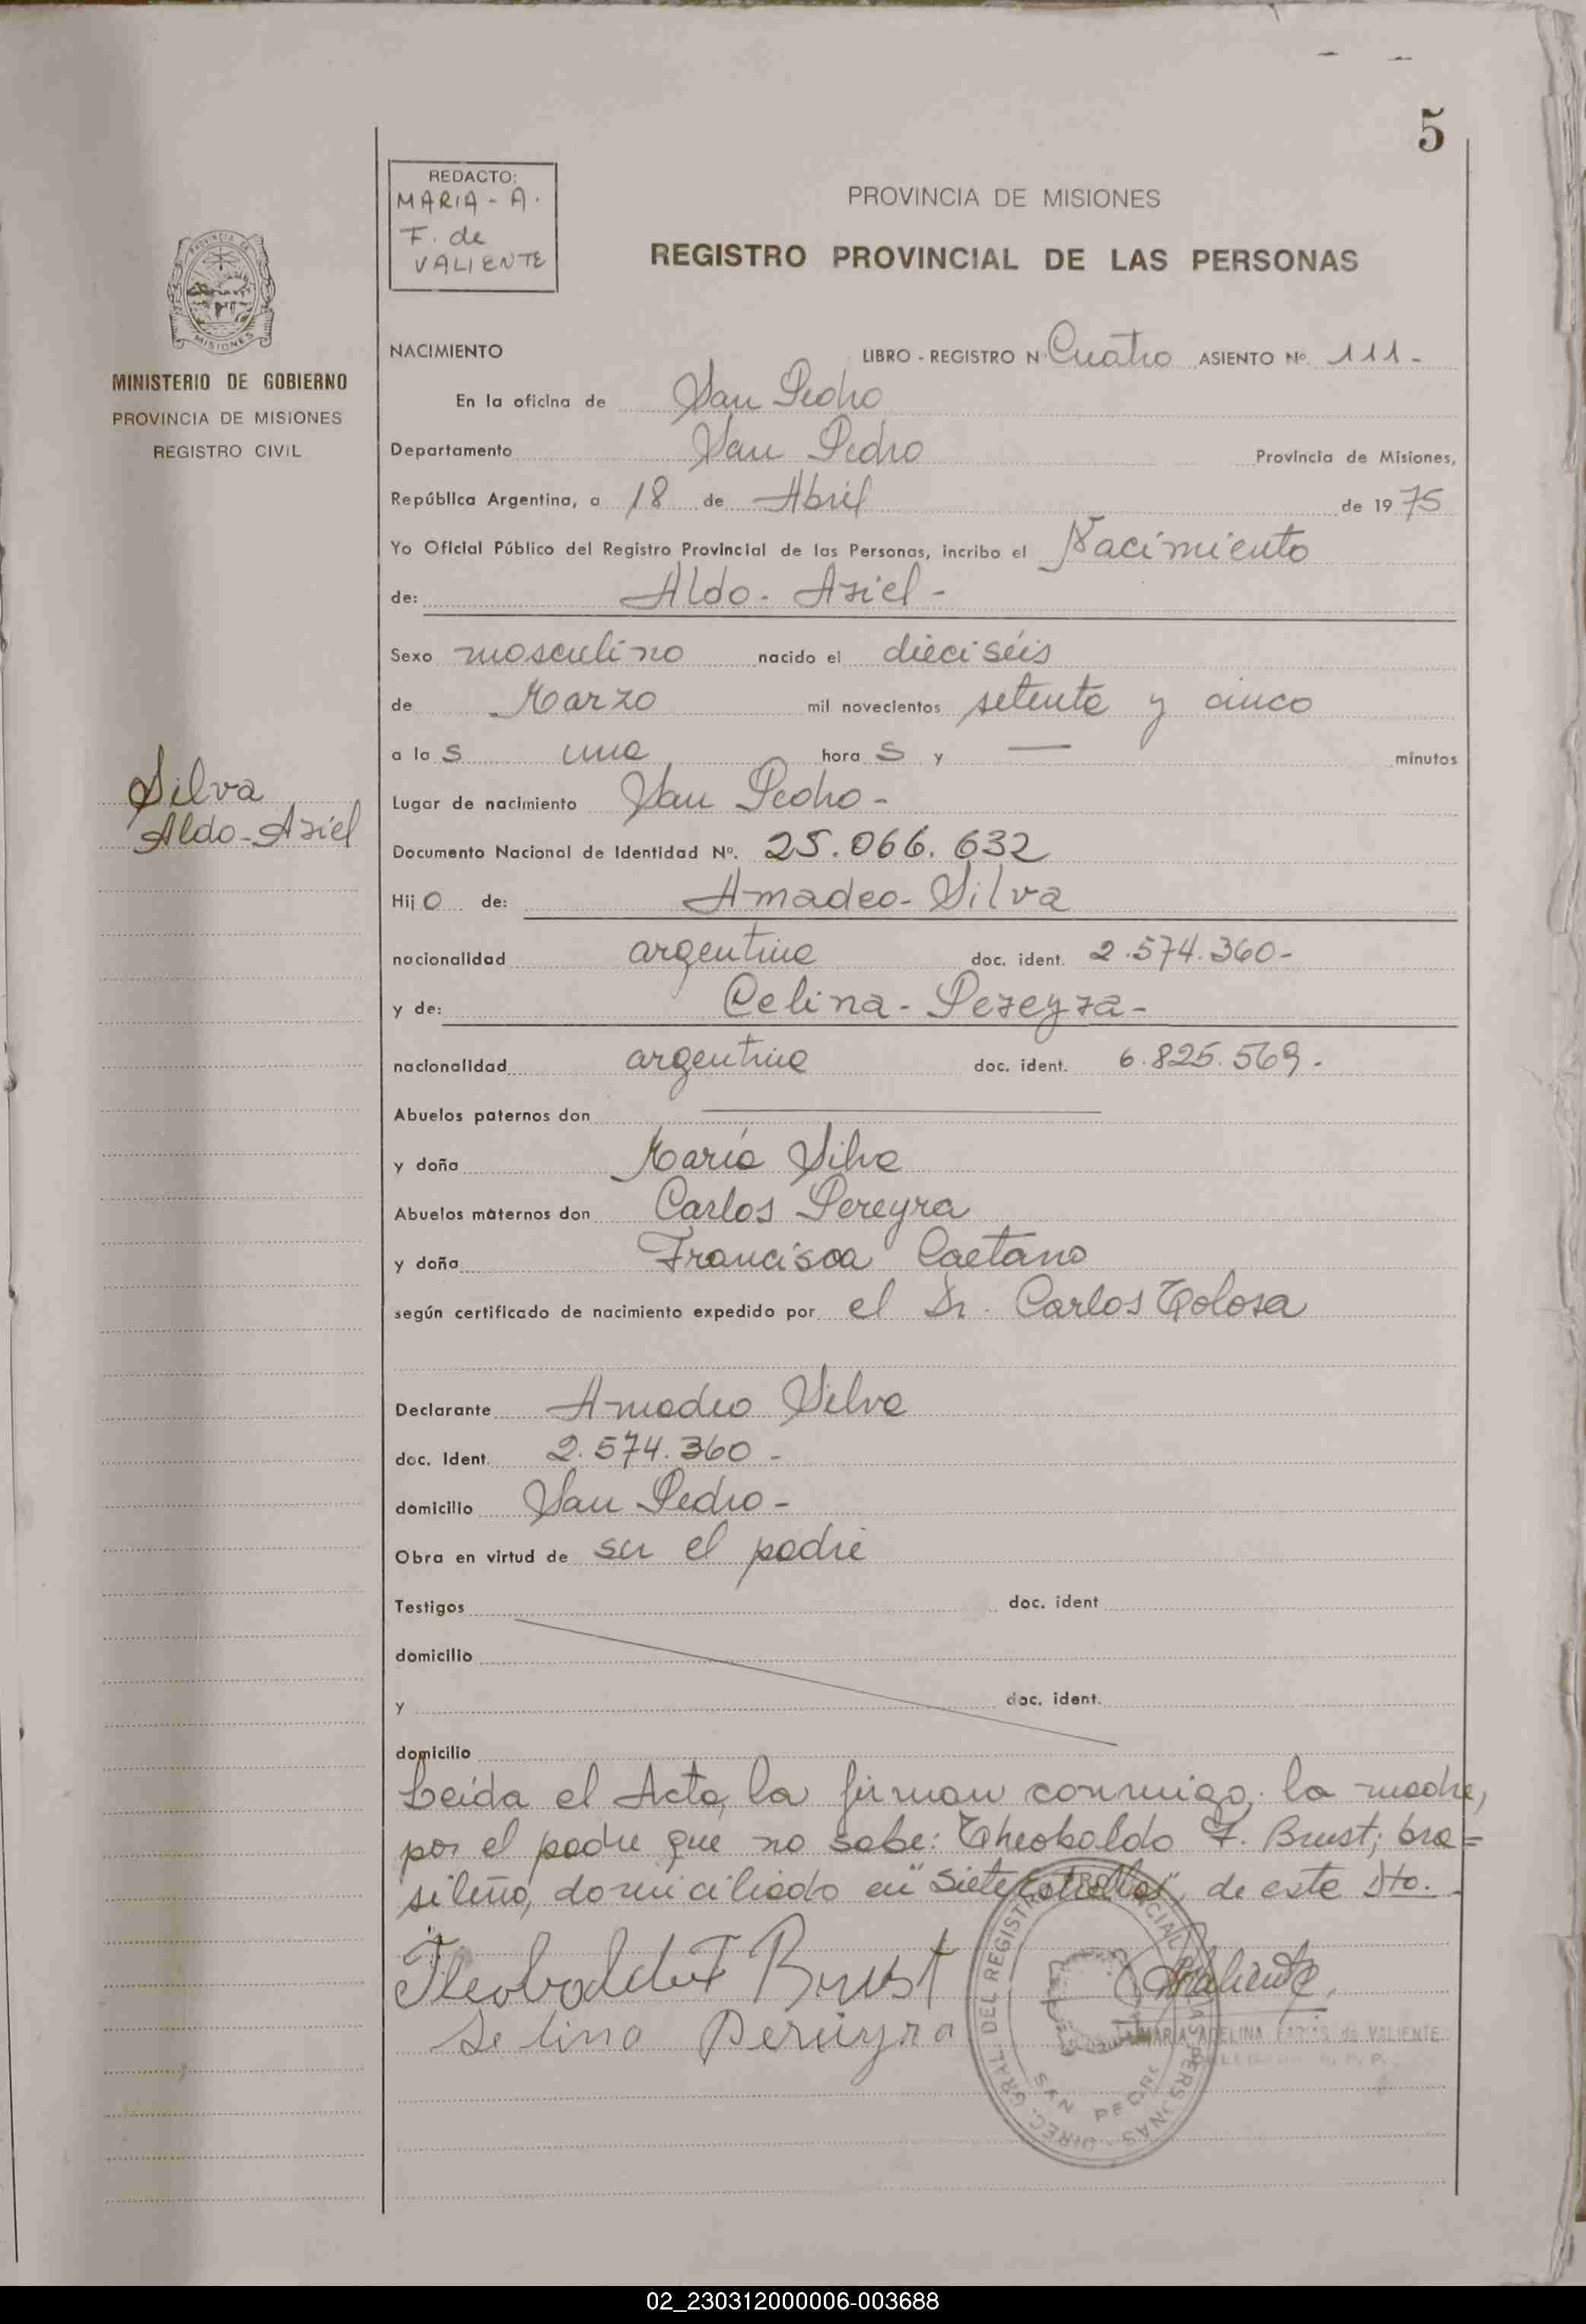 5
REDACTO:
MARIA - A.
F. de
VALIENTE
PROVINCIA DE MISIONES
REGISTRO PROVINCIAL DE LAS PERSONAS
MISIONES
MINISTERIO DE GOBIERNO
PROVINCIA DE MISIONES
REGISTRO CIVIL
NACIMIENTO LIBRO - REGISTRO N° Cuatro ASIENTO Nº. 111.-
En la oficina de San Pedro
Departamento San Pedro Provincia de Misiones,
República Argentina, a 18 de Abril de 1975
Yo Oficial Público del Registro Provincial de las Personas, incribo el Nacimiento
de: Aldo - Ariel -
Sexo masculino nacido el dieciséis
de Marzo mil novecientos setenta y cinco
Silva
Aldo - Ariel
a las una horas y — minutos
Lugar de nacimiento San Pedro -
Documento Nacional de Identidad Nº. 25.066.632
Hijo de: Amadeo - Silva
nacionalidad argentina doc. ident. 2.574.360-
y de: Celina - Pereyra -
nacionalidad argentina doc. ident. 6.825.569.
Abuelos paternos don —
y doña María Silva
Abuelos maternos don Carlos Pereyra
y doña Francisca Caetano
según certificado de nacimiento expedido por el Dr. Carlos Tolosa
Declarante Amadeo Silva
doc. Ident. 2.574.360 -
domicilio San Pedro -
Obra en virtud de ser el padre
Testigos doc. ident
domicilio
y doc. ident.
domicilio
Leída el Acta, la firman conmigo: la madre,
por el padre que no sabe: Theobaldo F. Brust; bra=
sileño, domiciliado en "Siete Estrellas", de este Dto.
Theobaldo F Brust Valiente
Selina Pereyra
MARIA ADELINA FARIAS de VALIENTE
DIREC. GRAL. DEL REGISTRO PROVINCIAL DE LAS PERSONAS
SAN PEDRO
02_230312000006-003688